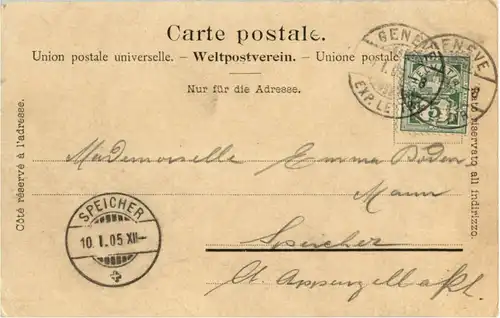 Carte postale.
Union postale universelle. – Weltpostverein. – Unione postale
Nur für die Adresse.
Côté réservé à l'adresse.
Lato riservato all indirizzo.
GENÈVE
EXP. LETTR.
5
Mademoiselle Emma Boden
Mann
Speicher
Ct. Appenzell
SPEICHER
10. I. 05 XII–